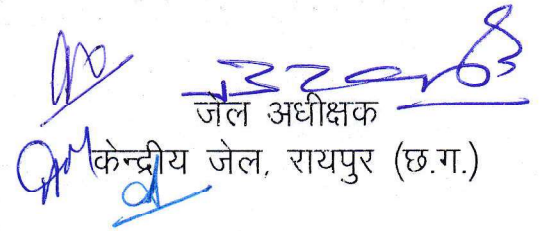 जेल अधीक्षक
केन्द्रीय जेल, रायपुर (छ.ग.)